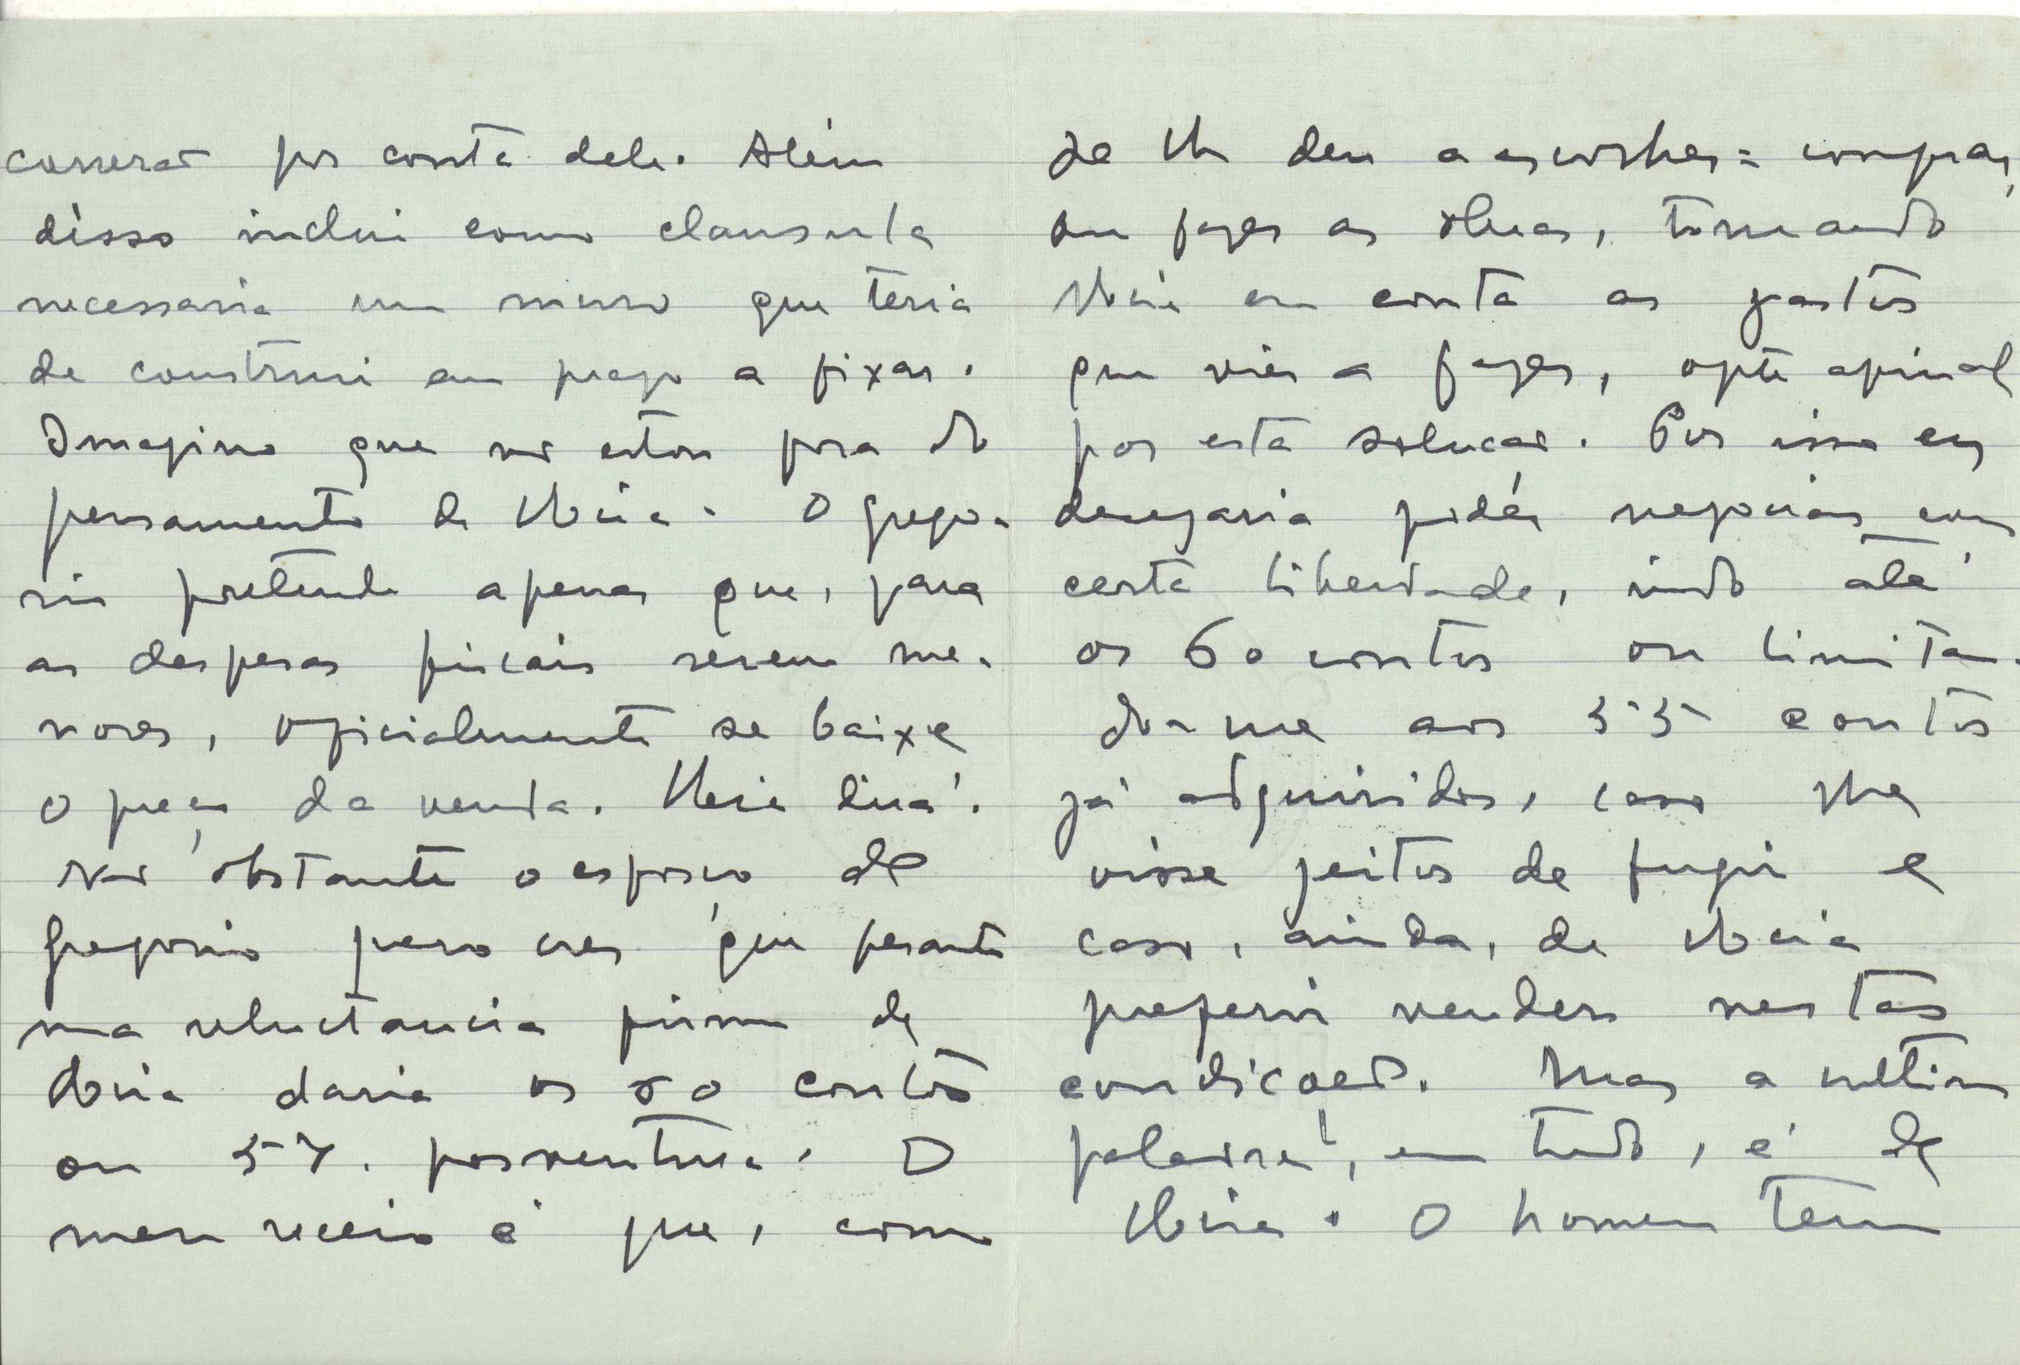 correrão por conta dele. Além
disso inclui como clausula
necessaria um muro que teria
de construir em prazo a fixar.
Imagino que não estou fora do
pensamento de Vbeia. O Grego-
rio pretende apenas que, para
as despesas fiscais serem me-
nores, oficialmente se baixe
o preço da venda. Vbeia dirá.
Não obstante o esforço de
Gregorio penso crer que perante
uma reluctancia firme de
Vbeia daria os 60 contos
ou 57. porventura. O
meu receio é que, como
se lhe deu a escolher = comprar,
ou fazer as obras, tomando
Vbeia em conta os gastos
que vier a fazer, opte afinal
por esta solucão. Por isso eu
desejaria podér negociar com
certa liberdade, indo até
os 60 contos ou limitan-
do-me aos 55 contos
já adquiridos, caso lhe
visse jeitos de fugir e
caso, ainda, de Vbeia
preferir vender nestas
condições. Mas a ultima
palavra, em tudo, é de
Vbeia. O homem tem